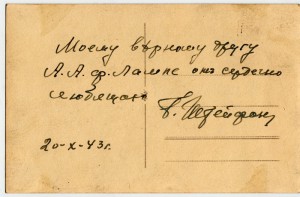 Моему вѣрному другу
А. А. ф. Лампе отъ сердечно
любящаго
Б. Штейфонъ
20-X-43 г.